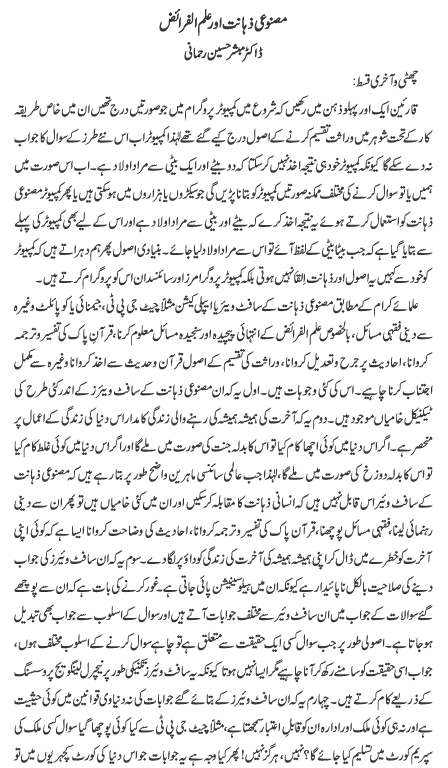 مصنوعی ذہانت اور علم الفرائض
ڈاکٹر مبشر حسین رحمانی
چھٹی و آخری قسط:
قارئین ایک اور پہلو ذہن میں رکھیں کہ شروع میں کمپیوٹر پروگرام میں جو صورتیں درج تھیں ان میں خاص طریقہ
کار کے تحت شوہر میں وراثت تقسیم کرنے کے اصول درج کیے گئے تھے لہٰذا کمپیوٹر اب اس نئے طرز کے سوال کا جواب
نہ دے سکے گا کیونکہ کمپیوٹر خود ہی نتیجہ اخذ نہیں کر سکتا کہ دو بیٹے اور ایک بیٹی سے مراد اولاد ہے۔ اب اس صورت میں
ہمیں یا تو سوال کرنے کی مختلف ممکنہ صورتیں کمپیوٹر کو بتانا پڑیں گی جو سیکڑوں یا ہزاروں میں ہو سکتی ہیں یا پھر کمپیوٹر مصنوعی
ذہانت کو استعمال کرتے ہوئے یہ نتیجہ اخذ کرے کہ بیٹے اور بیٹی سے مراد اولاد ہے اور اس کے لیے بھی کمپیوٹر کی پہلے
سے بتایا گیا ہے کہ جب بیٹا بیٹی کے لفظ آئے تو اس سے مراد اولاد لیا جائے۔ بنیادی اصول پھر ہم دہراتے ہیں کہ کمپیوٹر
کو خود سے کہیں یہ اصول اور ذہانت القا نہیں ہوتی بلکہ کمپیوٹر پروگرامرز اور سائنسدان اس کو پروگرام کرتے ہیں۔
علمائے کرام کے مطابق مصنوعی ذہانت کے سافٹ ویئر یا ایپلی کیشن مثلاً چیٹ جی پی ٹی، جیمنائی یا کو پائلٹ وغیرہ
سے دینی فقہی مسائل، بالخصوص علم الفرائض کے انتہائی پیچیدہ اور سنجیدہ مسائل معلوم کرنا، قرآن پاک کی تفسیر و ترجمہ
کروانا، احادیث پر جرح و تعدیل کروانا، وراثت کی تقسیم کے اصول قرآن و حدیث سے اخذ کروانا وغیرہ سے مکمل
اجتناب کرنا چاہیے۔ اس کی کئی وجوہات ہیں۔ اول یہ کہ ان مصنوعی ذہانت کے سافٹ ویئرز کے اندر کئی طرح کی
ٹیکنیکل خامیاں موجود ہیں۔ دوم یہ کہ آخرت کی ہمیشہ ہمیشہ کی رہنے والی زندگی کا مدار اس دنیا کی زندگی کے اعمال پر
منحصر ہے۔ اگر اس دنیا میں کوئی اچھا کام کیا تو اس کا بدلہ جنت کی صورت میں ملے گا اور اگر اس دنیا میں کوئی غلط کام کیا
تو اس کا بدلہ دوزخ کی صورت میں ملے گا، لہٰذا جب عالمی سائنسی ماہرین واضح طور پر بتا رہے ہیں کہ مصنوعی ذہانت
کے سافٹ ویئر اس قابل نہیں ہیں کہ انسانی ذہانت کا مقابلہ کر سکیں اور ان میں کئی خامیاں ہیں تو پھر ان سے دینی
رہنمائی لینا، فقہی مسائل پوچھنا، قرآن پاک کی تفسیر و ترجمہ کروانا، احادیث کی وضاحت کروانا ایسا ہے کہ کوئی اپنی
آخرت کو خطرے میں ڈال کر اپنی ہمیشہ ہمیشہ کی آخرت کی زندگی کو داؤ پر لگا دے۔ سوم یہ کہ ان سافٹ ویئرز کی جواب
دینے کی صلاحیت بالکل ناپائیدار ہے کیونکہ ان میں ہیلوسینیشن پائی جاتی ہے۔ غور کرنے کی بات ہے کہ ان سے پوچھے
گئے سوالات کے جواب میں ان سافٹ ویئر سے مختلف جوابات آتے ہیں اور سوال کے اسلوب سے جواب بھی تبدیل
ہو جاتا ہے۔ اصولی طور پر جب سوال کسی ایک حقیقت سے متعلق ہے تو چاہے سوال کرنے کے اسلوب مختلف ہوں،
جواب اسی حقیقت کو سامنے رکھ کر آنا چاہیے مگر ایسا نہیں ہوتا کیونکہ یہ سافٹ ویئرز تکنیکی طور پر نیچرل لینگویج پروسسنگ
کے ذریعے کام کرتے ہیں۔ چہارم یہ کہ ان سافٹ ویئرز کے بتائے گئے جوابات کی نہ دنیاوی قوانین میں کوئی حیثیت
ہے اور نہ ہی کوئی ملک اور ادارہ ان کو قابل اعتبار سمجھتا ہے، مثلاً چیٹ جی پی ٹی سے کیا کوئی پوچھا گیا سوال کسی ملک کی
سپریم کورٹ میں تسلیم کیا جائے گا؟ نہیں، ہرگز نہیں! پھر کیا وجہ ہے یہ جوابات جو اس دنیا کی کورٹ کچہریوں میں تو